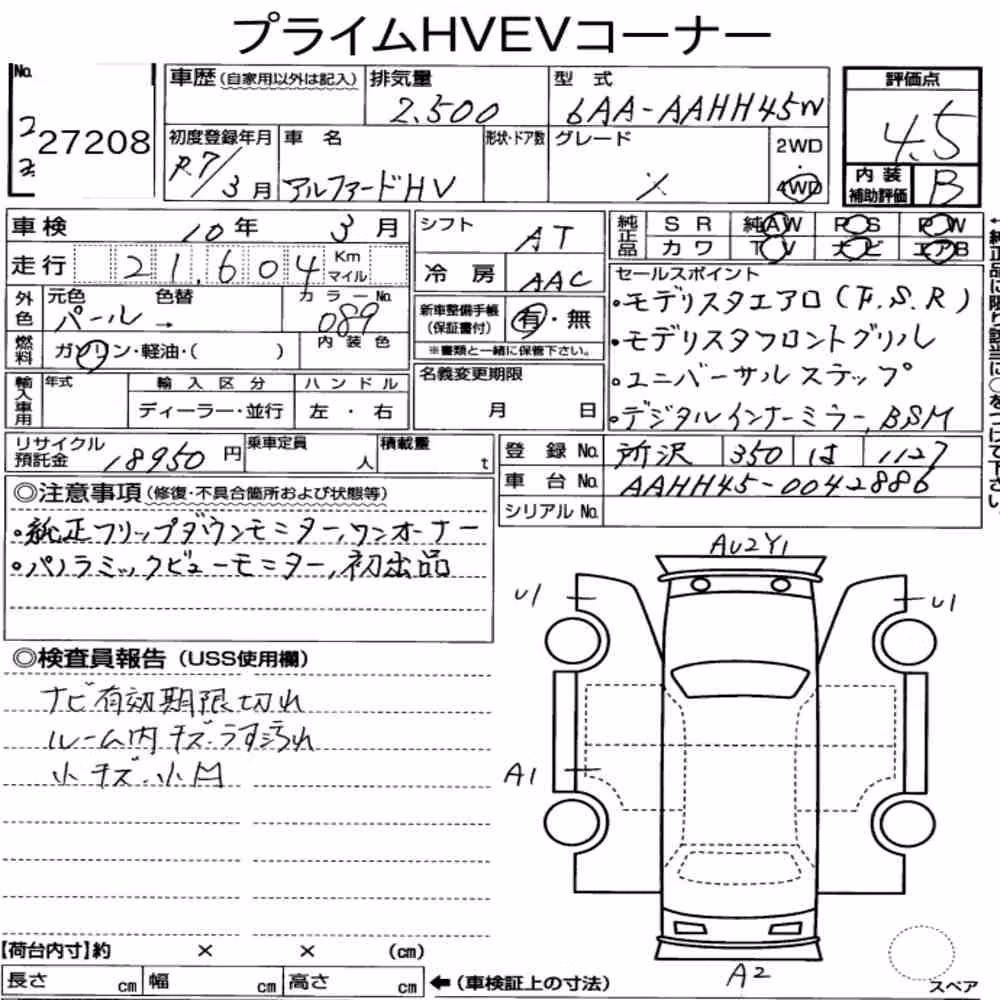 プライムHVEVコーナー
No.
27208
車歴（自家用以外は記入）
排気量
2.500
型式
6AA-AAHH45W
評価点
4.5
初度登録年月
R.7/3月
車名
アルファードHV
形状・ドア数
グレード
X
2WD
・
4WD
内装補助評価
B
車検
10年 3月
シフト
AT
純正品
SR 純AW PS PW
カワ TV ナビ エアB
走行
21,604
Km
マイル
冷房
AAC
セールスポイント
・モデリスタエアロ(F.S.R)
・モデリスタフロントグリル
・ユニバーサルステップ
・デジタルインナーミラー,BSM
外色
元色
色替
パール→
カラーNo.
089
内装色
新車整備手帳
（保証書付）
有・無
※書類と一緒に保管下さい。
燃料
ガソリン・軽油・（ ）
名義変更期限
月 日
輸入車用
年式
輸入区分
ディーラー・並行
ハンドル
左・右
リサイクル預託金
18950円
乗車定員
人
積載量
t
登録No.
所沢 350 は 1127
車台No.
AAHH45-0042886
シリアルNo.
←純正品に限り該当に○をつけて下さい。
◎注意事項（修復・不具合箇所および状態等）
・純正フリップダウンモニター,ワンオーナー
・パノラミックビューモニター,初出品
◎検査員報告（USS使用欄）
ナビ有効期限切れ
ルーム内キズ・うす汚れ
小キズ・小凹
AU2Y1
U1
U1
A1
A2
スペア
【荷台内寸】約 × × (cm)
長さ cm 幅 cm 高さ cm
←（車検証上の寸法）